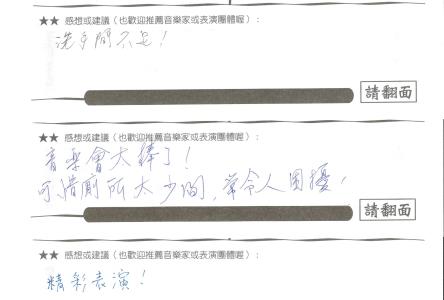 ★★ 感想或建議（也歡迎推薦音樂家或表演團體喔）：
洗手間不足！
請翻面
★★ 感想或建議（也歡迎推薦音樂家或表演團體喔）：
音樂會太棒了！
可惜廁所太少間，常令人困擾，
請翻面
★★ 感想或建議（也歡迎推薦音樂家或表演團體喔）：
精彩表演！